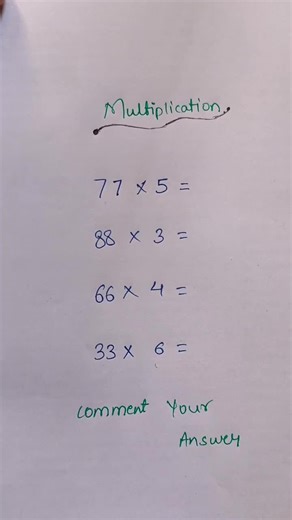 Multiplication.
77 × 5 =
88 × 3 =
66 × 4 =
33 × 6 =
comment Your
Answer